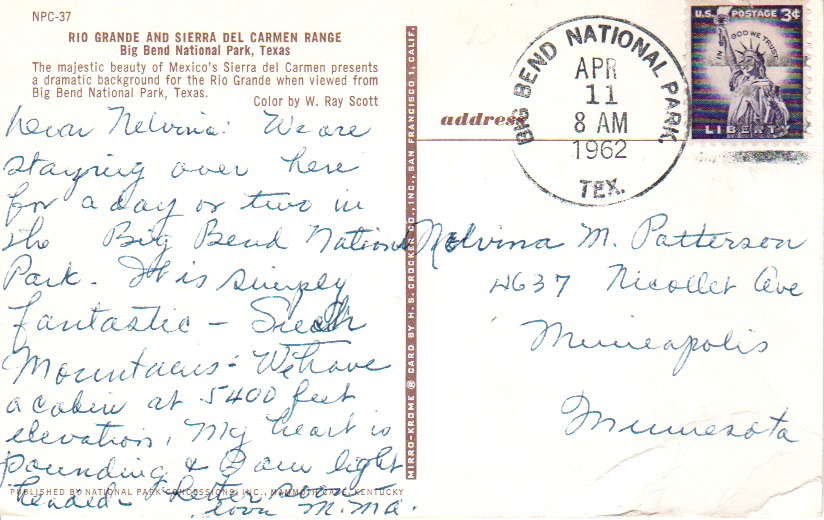 NPC-37
RIO GRANDE AND SIERRA DEL CARMEN RANGE
Big Bend National Park, Texas
The majestic beauty of Mexico's Sierra del Carmen presents
a dramatic background for the Rio Grande when viewed from
Big Bend National Park, Texas.
Color by W. Ray Scott
Dear Nelvina: We are
staying over here
for a day or two in
the Big Bend National
Park. It is simply
fantastic – Such
Mountains – We have
a cabin at 5400 feet
elevation. My heart is
pounding & I am light
headed – Letter soon –
Love M. Ma.
PUBLISHED BY NATIONAL PARK CONCESSIONS, INC., MAMMOTH CAVE, KENTUCKY
MIRRO-KROME ® CARD BY H. S. CROCKER CO., INC., SAN FRANCISCO 1, CALIF.
address
BIG BEND NATIONAL PARK,
APR
11
8 AM
1962
TEX.
U.S. POSTAGE 3¢
IN GOD WE TRUST
LIBERTY
Nelvina M. Patterson
4637 Nicollet Ave
Minneapolis
Minnesota